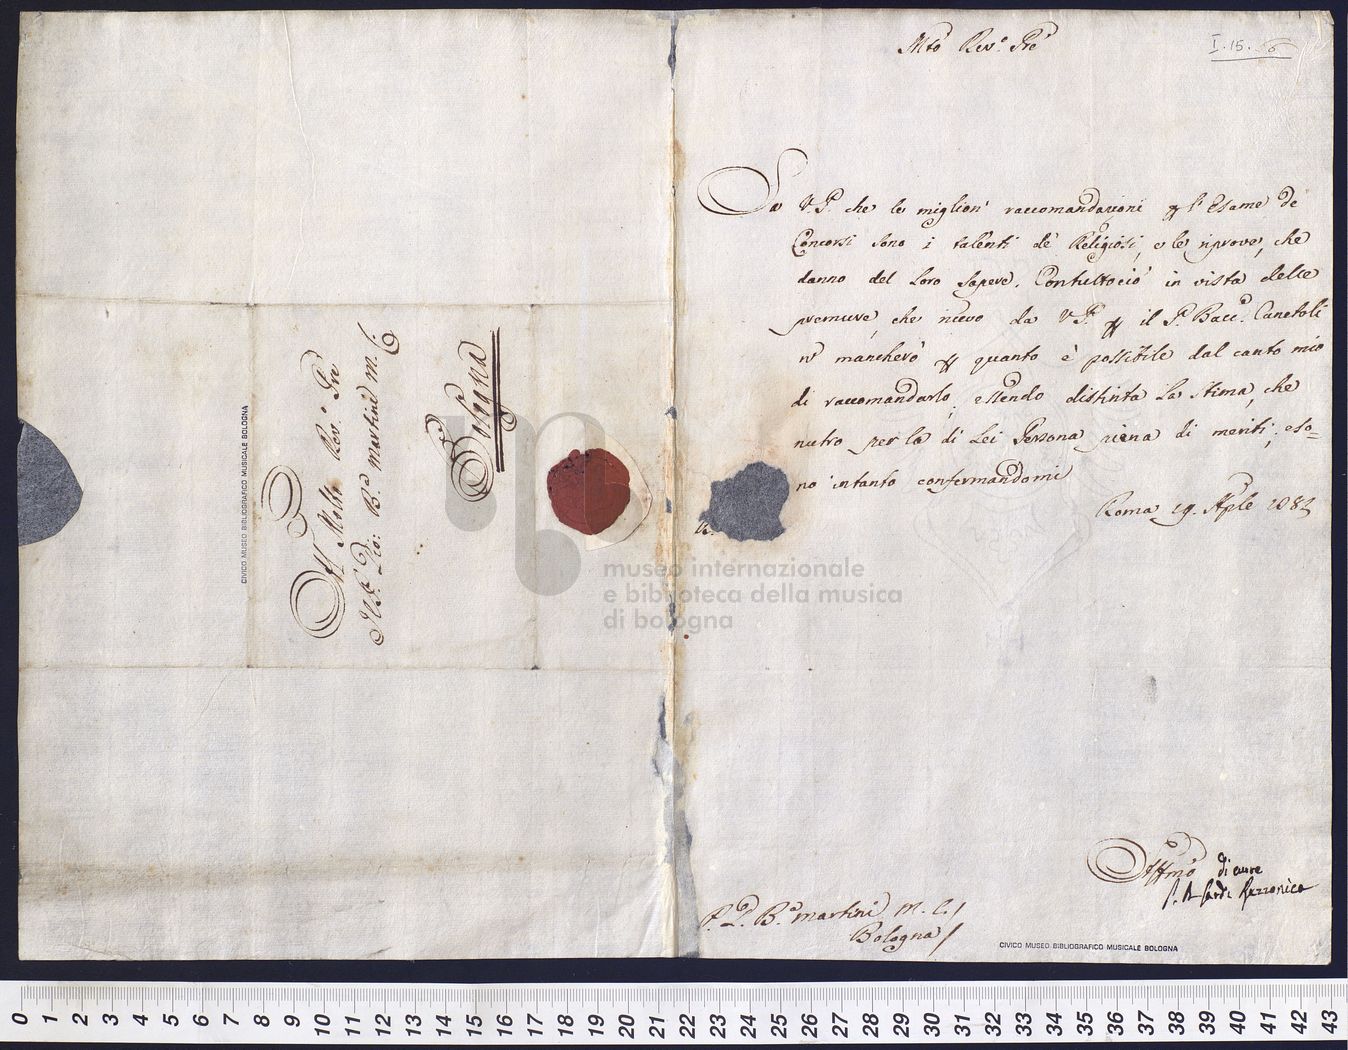 Al Molto Rev.º Pre
Il P. Gio: B.ª Martini M. C.
Bologna
CIVICO MUSEO BIBLIOGRAFICO MUSICALE BOLOGNA
museo internazionale
e biblioteca della musica
di bologna
Mto Rev.º Pre
I. 15. 56
Sa V.P. che le migliori raccomandazioni l'Esame de
Concorsi sono i talenti de Religiosi, e le riprove, che
danno del loro sapere. Contuttociò in vista delle
premure, che ricevo da V.P. il P. Bacc.e Canetoli
nõ mancherò quanto è possibile dal canto mio
di raccomandarlo, essendo distinta la stima, che
nutro per la di Lei Persona piena di meriti; e so=
no intanto confermandomi
Roma 19. Aple 1782
Affmo di cuore
Card. Rezzonico
P. G. B.ª Martini M. C.
Bologna
CIVICO MUSEO BIBLIOGRAFICO MUSICALE BOLOGNA
0 1 2 3 4 5 6 7 8 9 10 11 12 13 14 15 16 17 18 19 20 21 22 23 24 25 26 27 28 29 30 31 32 33 34 35 36 37 38 39 40 41 42 43